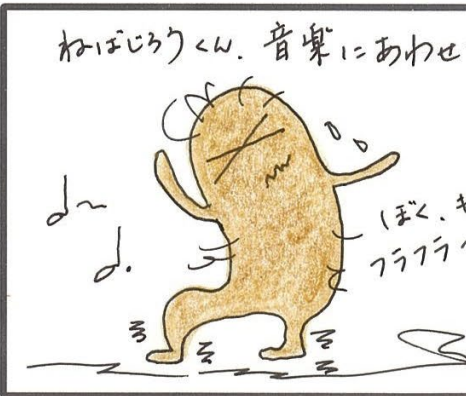 ねばじろうくん. 音楽にあわせ
ぼく、
フラフラ